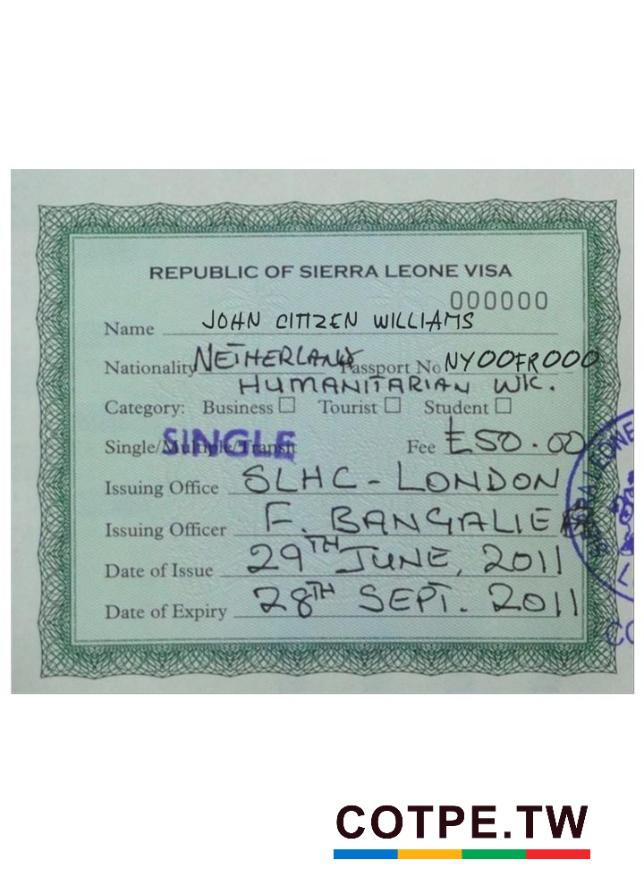 REPUBLIC OF SIERRA LEONE VISA
000000
Name JOHN CITIZEN WILLIAMS
Nationality NETHERLAND Passport No NY00FR000
HUMANITARIAN WK.
Category: Business ☐ Tourist ☐ Student ☐
Single/Multiple/Transit SINGLE Fee £50.00
Issuing Office SLHC - LONDON
Issuing Officer F. BANGALIE
Date of Issue 29TH JUNE, 2011
Date of Expiry 28TH SEPT. 2011
LEONE
CO
COTPE.TW